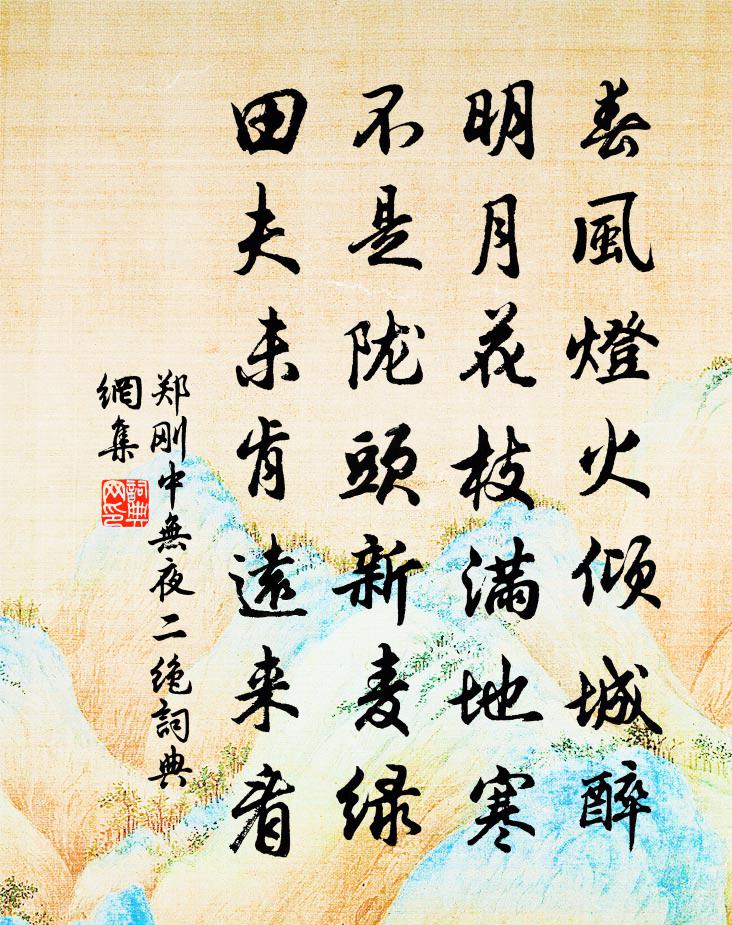 春風燈火倾城醉
明月花枝满地寒
不是陇頭新麦绿
田夫未肯遠来看
郑刚中無夜二绝詞典
網集
詞典
网印